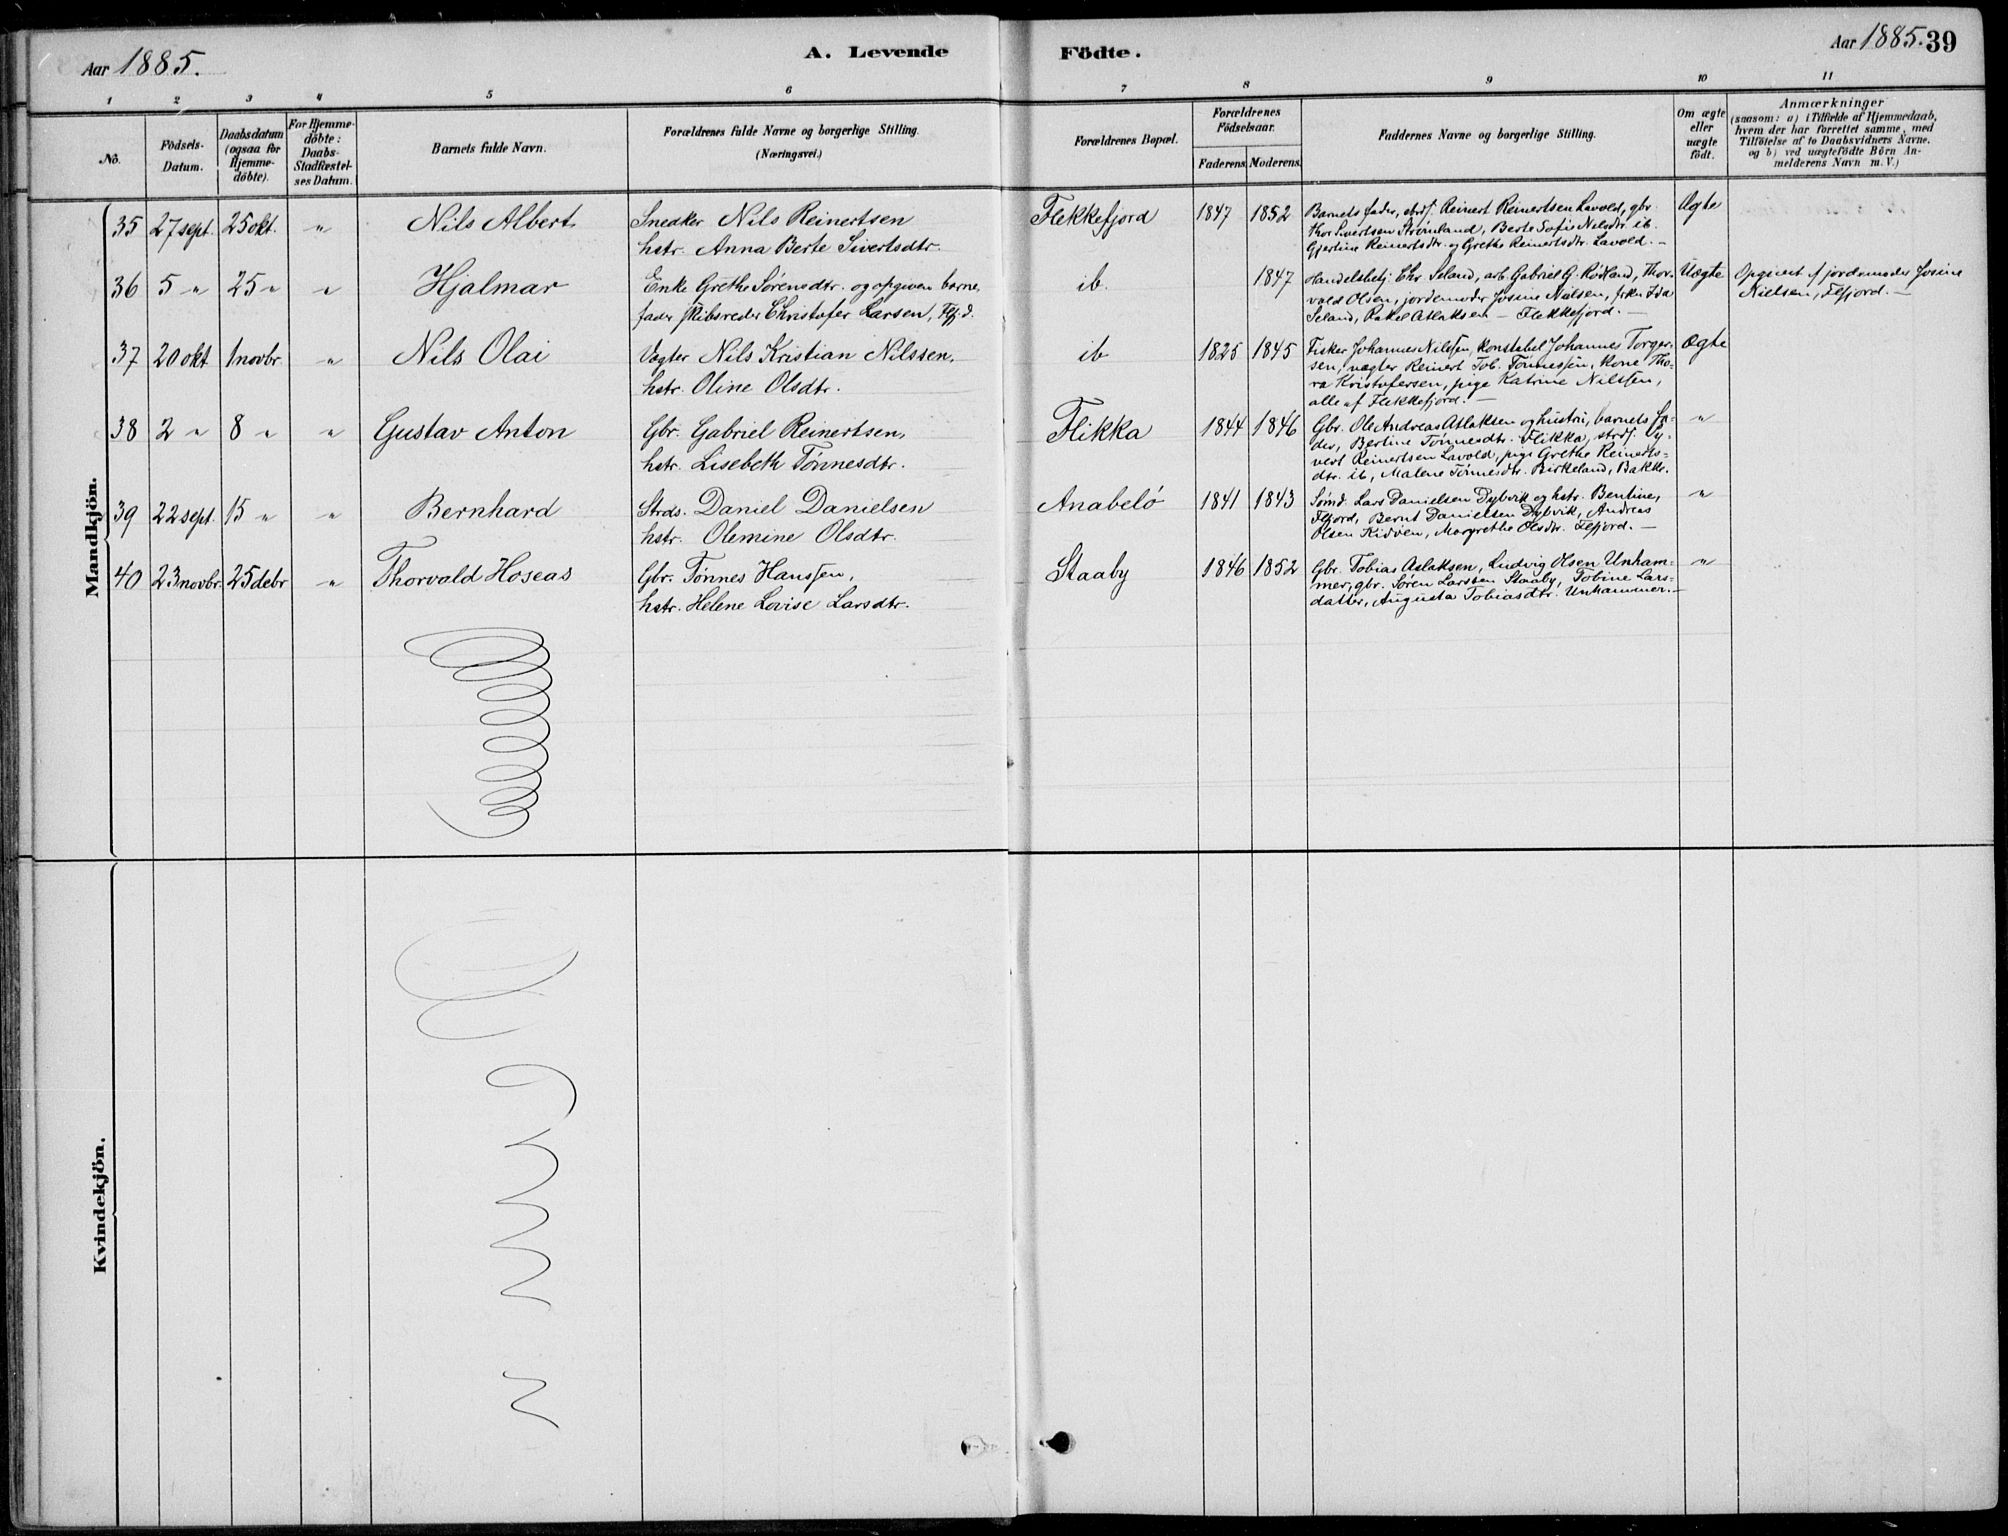 Aar 1885.
A. Levende Födte.
Aar 1885. 39
1 2 3 4 5 6 7 8 9 10 11
No.
Födsels-
Datum.
Daabsdatum
(ogsaa for
Hjemme-
döbte).
For Hjemme-
döbte:
Daabs-
Stadfæstel-
ses Datum.
Barnets fulde Navn.
Forældrenes fulde Navne og borgerlige Stilling.
(Næringsvei.)
Forældrenes Bopæl.
Forældrenes
Födselsaar.
Faderens. Moderens.
Faddernes Navne og borgerlige Stilling.
Om ægte
eller
uægte
födt.
Anmærkninger
(saasom: a) i Tilfælde af Hjemmedaab,
hvem der har forrettet samme, med
Tilföielse af to Daabsvidners Navne.
og b) ved uægtefödte Börn An-
melderens Navn m. V.)
Mandkjön.
35 27 sept. 25 okt. " Nils Albert
Snedker Nils Reinertsen
hstr. Anna Berte Sivertsdtr.
Flekkefjord 1847 1852
Barnets fader, strds. Reinert Reinertsen Lavold, gbr.
Thor Sivertsen Strømland, Berte Sofie Nilsdtr. ib.
Gjertine Reinertsdtr. og Grethe Reinertsdtr. Lavold. —
Ægte
36 5 " 25 " " Hjalmar
Enke Grethe Sørensdtr. og opgiven barne-
fader skibsreder Christofer Larsen, Flfjd.
ib. 1847
Handelsbetj. Chr. Seland, arb. Gabriel G. Rødland, Thor-
vald Olsen, jordemoder Josine Nielsen, frkn Ida
Seland, Rakel Atlaksen — Flekkefjord. —
Uægte
Opgivet af jordemoder Josine
Nielsen, Flfjord. —
37 20 okt 1 novbr. " Nils Olai
Vægter Nils Kristian Nilssen,
hstr. Oline Olsdtr.
ib 1825 1845
Fisker Johannes Nilssen, konstabel Johannes Torger-
sen, vægter Reinert Tob. Tønnessen, kone Tho-
ra Kristofersen, pige Katrine Nilssen,
alle af Flekkefjord. —
Ægte
38 2 " 8 " " Gustav Anton
Gbr. Gabriel Reinertsen,
hstr. Lisebeth Tønnesdtr.
Flikka 1844 1846
Gbr. Ole Andreas Atlaksen og hustru, barnets fa-
der, Bertine Tønnesdtr. Flikka, strds. Sy-
vert Reinertsen Lavold, pige Grethe Reinerts-
dtr. ib, Malene Tønnesdtr. Birkeland, Bakke.
"
39 22 sept. 15 " " Bernhard
Strds. Daniel Danielsen
hstr. Olemine Olsdtr.
Anabelø 1841 1843
Sømd. Lars Danielsen Dybvik og hstr. Bentine,
Flfjord, Bernt Danielsen Dybvik, Andreas
Olsen Kidøen, Margrethe Olsdtr. Flfjord. —
"
40 23 novbr. 25 debr " Thorvald Hoseas
Gbr. Tønnes Hanssen,
hstr. Helene Lovise Larsdtr.
Staaby 1846 1852
Gbr. Tobias Aslaksen, Ludvig Olsen Unham-
mer, gbr. Søren Larssen Staaby, Tobine Lars-
datter, Augusta Tobiasdtr. Unhammer. —
"
Kvindekjön.